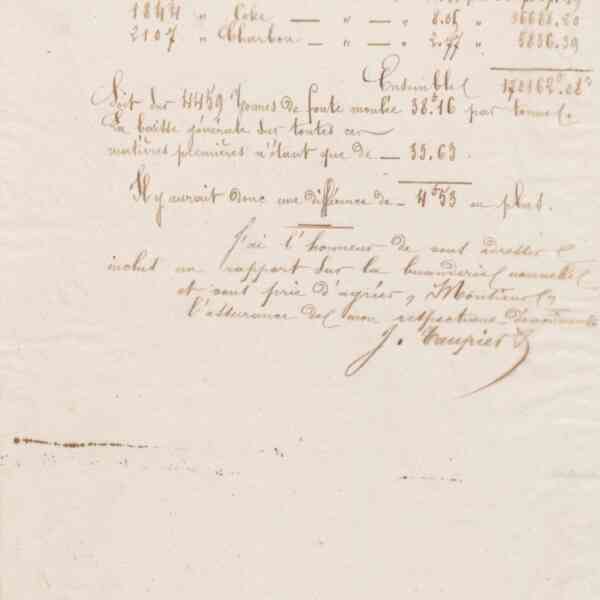 1844 " Coke — " — " 8.05 "
2107 " Charbon — " — " 2.77 " 5836.39
Ensemble 170162.08
Soit sur 4459 Tonnes de fonte moulée 38.16 par tonne.
La baisse générale sur toutes ces
matières premières n'étant que de — 33.63.
Il y aurait donc une différence de — 4.53 en plus.
J'ai l'honneur de vous adresser
inclus un rapport sur la buanderie nouvelle
et vous prie d'agréer, Monsieur,
l'assurance de mon respectueux dévouement
J. Taupier